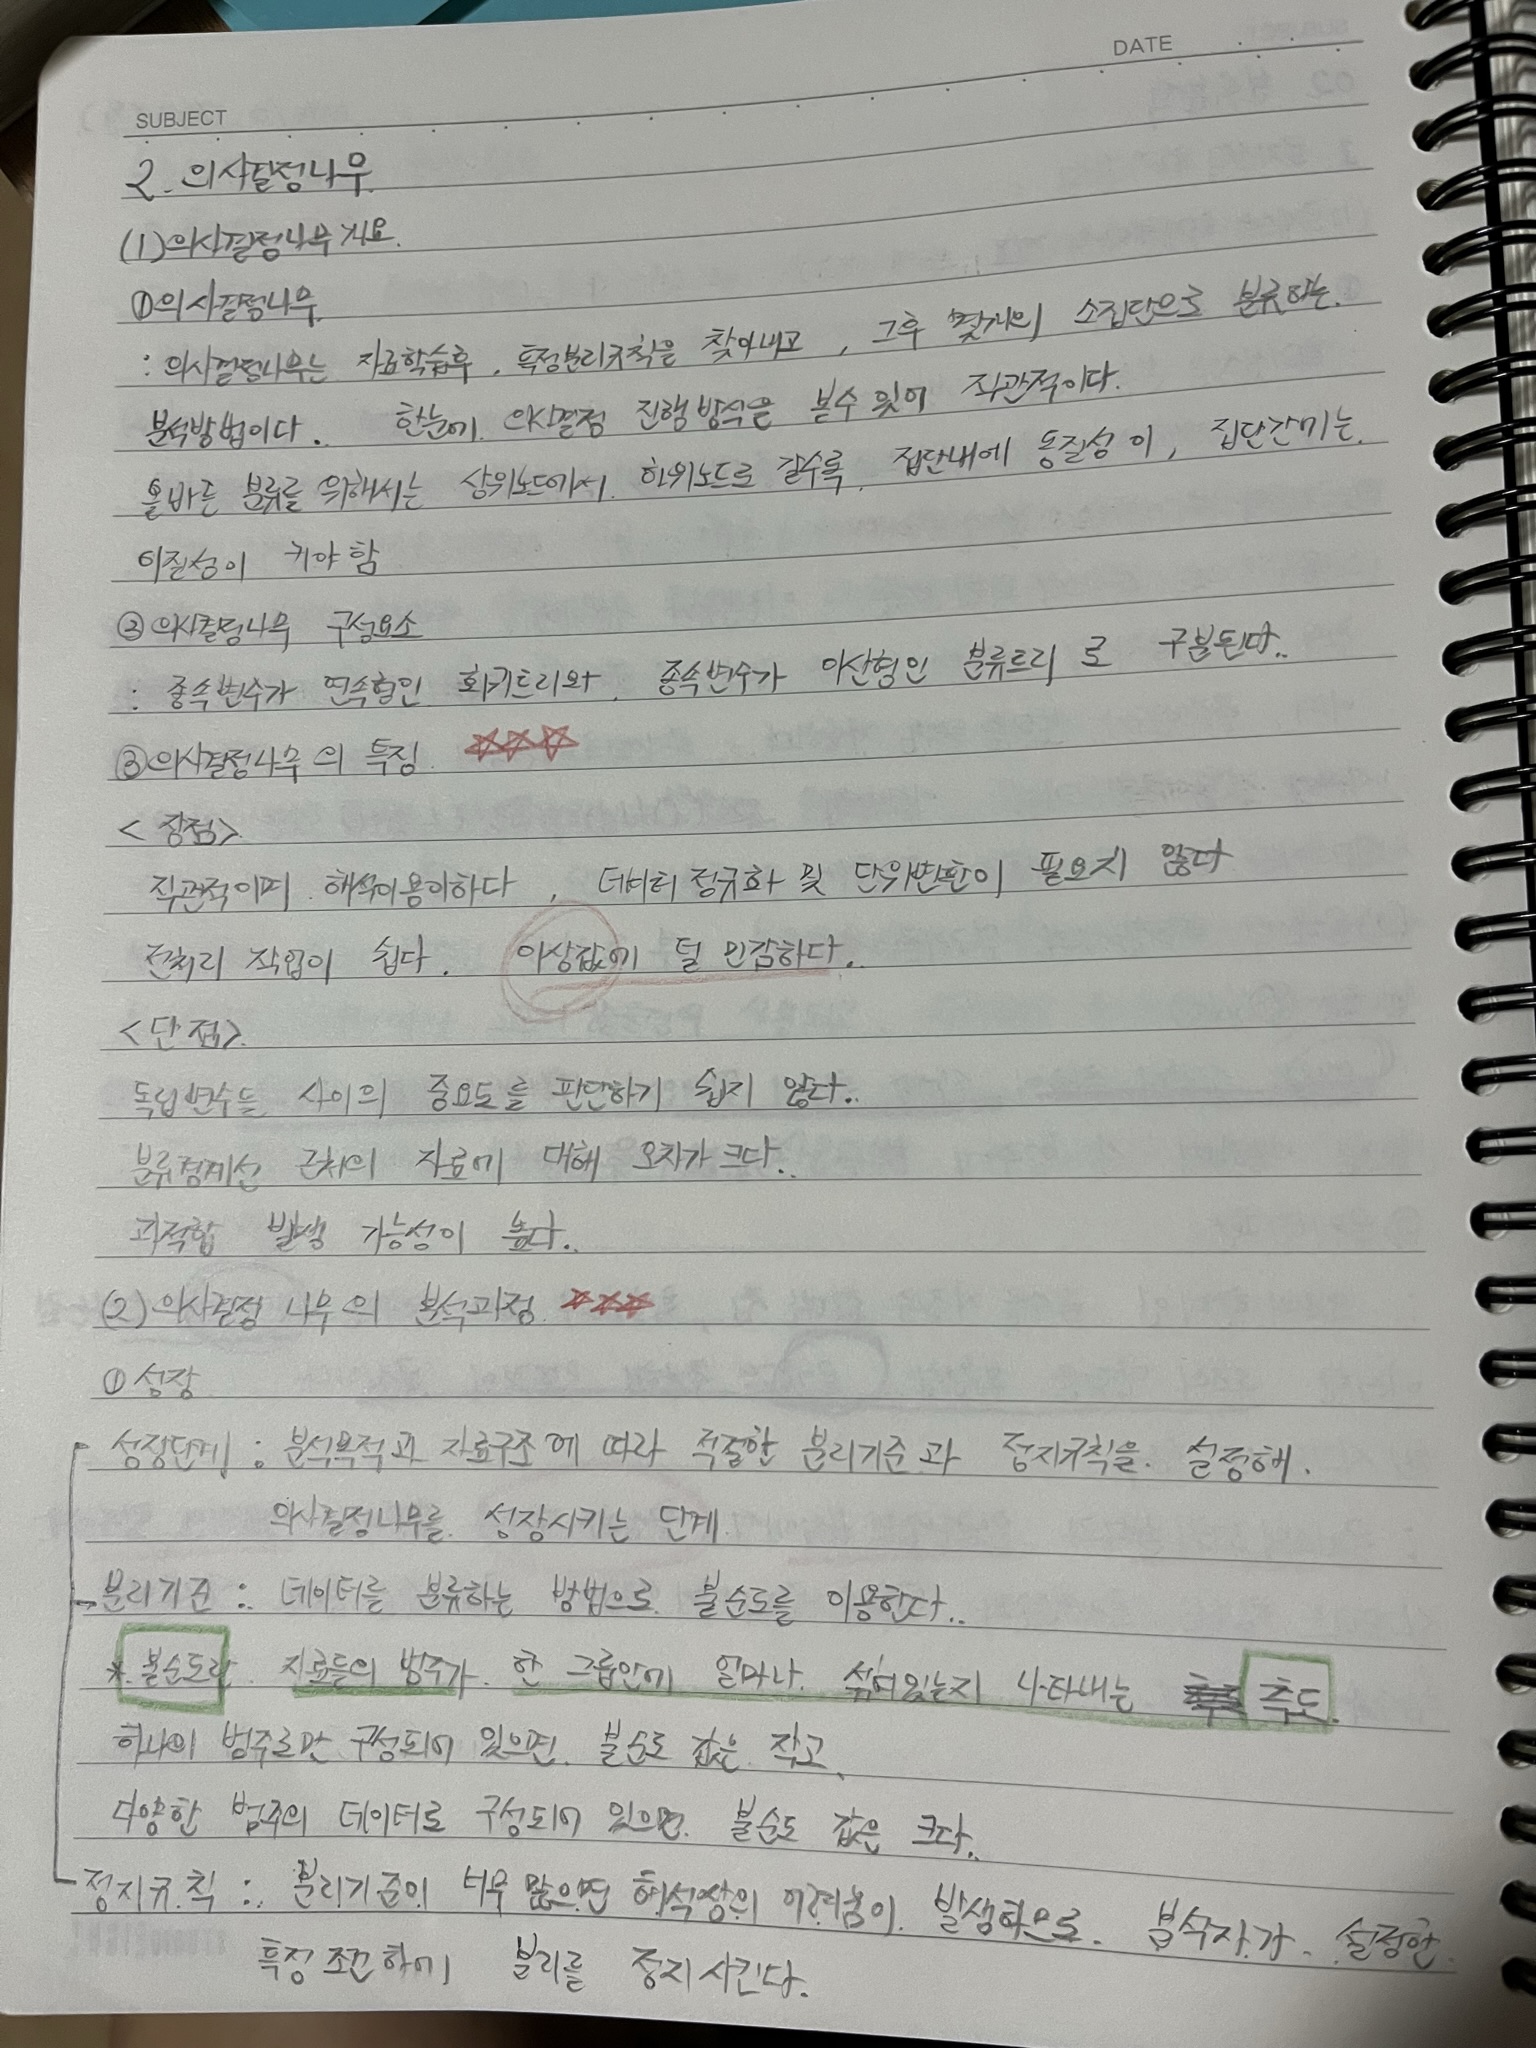 DATE
SUBJECT
2. 의사결정나무
(1) 의사결정나무 개요.
① 의사결정나무.
: 의사결정나무는 자료학습후, 특정분리규칙을 찾아내고, 그후 몇개의 소집단으로 분류하는.
분석방법이다. 한눈에 의사결정 진행방식을 볼수 있어 직관적이다.
올바른 분류를 위해서는 상위노드에서 하위노드로 갈수록 집단내에 동질성이, 집단간에는.
이질성이 커야함
② 의사결정나무 구성요소
: 종속변수가 연속형인 회귀트리와, 종속변수가 이산형인 분류트리로 구분된다.
③ 의사결정나무의 특징 ☆☆☆
<장점>
직관적이며 해석이용이하다, 데이터 정규화 및 단위변환이 필요치 않다
전처리 작업이 쉽다. 이상값에 덜 민감하다.
<단점>
독립변수들 사이의 중요도를 판단하기 쉽지 않다.
분류경계선 근처의 자료에 대해 오차가 크다.
과적합 발생 가능성이 높다.
(2) 의사결정 나무의 분석과정 ☆☆☆
① 성장
성장단계 : 분석목적과 자료구조에 따라 적절한 분리기준과 정지규칙을 설정해.
의사결정나무를 성장시키는 단계
분리기준 : 데이터를 분류하는 방법으로 불순도를 이용한다.
* 불순도란 자료들의 범주가 한 그룹안에 얼마나 섞여있는지 나타내는 측도.
하나의 범주로만 구성되어 있으면 불순도 값은 작고,
다양한 범주의 데이터로 구성되어 있으면 불순도 값은 크다.
정지규칙 : 분리기준이 너무 많으면 해석상의 어려움이 발생하므로 분석자가 설정한
특정조건하에 분리를 정지시킨다.